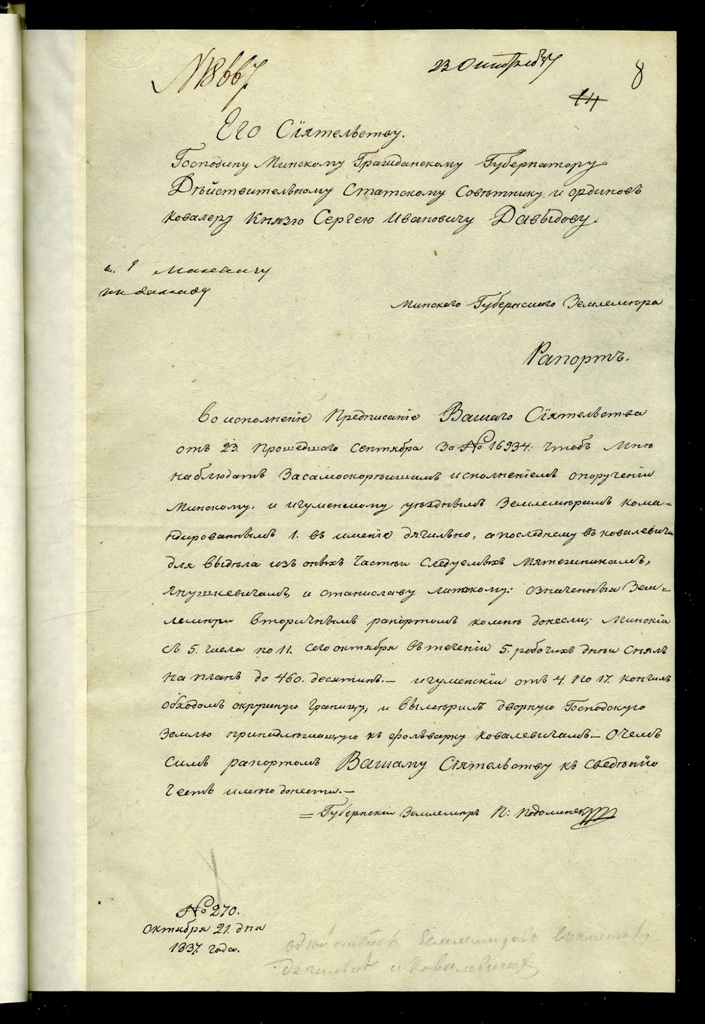 № 18667
23 Октября
8
14
Его Сіятельству.
Господину Минскому Гражданскому Губернатору
Дѣйствительному Статскому Совѣтнику и ординовъ
Ковалеру Князю Сергею Ивановичу Давыдову.
къ докладу
Минского Губернского Землемѣра
Рапортъ.
Во исполненіе Предписаніе Вашаго Сіятельства
отъ 23. прошедшаго Сентября За № 16934. чтобъ мнѣ
наблюдать За самоскорѣйшимъ исполненіемъ опорученіи
Минскому. и игуменскому уѣзднымъ Землемѣрамъ кома-
ндированнымъ 1. въ имение дягильно, а последнему въ ковалевичи
для выдѣла изъ оныхъ частеи Следуемыхъ Мятежникамъ,
Янушкевичамъ и станиславу литскому: означенныи Зем=
лемѣри вторичнымъ рапортомъ комнѣ донесли; Минскіи
съ 5. числа по 11. сего октября въ теченіи 5. робочихъ днеи снялъ
на планъ до 460. десятинъ.— игуменскіи отъ 4 по 17. кончилъ
обходомъ окружную границу, и вымѣрилъ дворную Господскую
Землю принадлежащую къ фольварку ковалевичамъ.— О чемъ
симъ рапортомъ Вашаму Сіятельству къ сведѣнію
честь имѣю донести.—
= Губернскіи Землемѣръ П: Подолинск
№ 270.
Октября 21. дня
1837. года.
Землемѣровъ въ имѣніи
Дегильнѣ и Ковалевичах